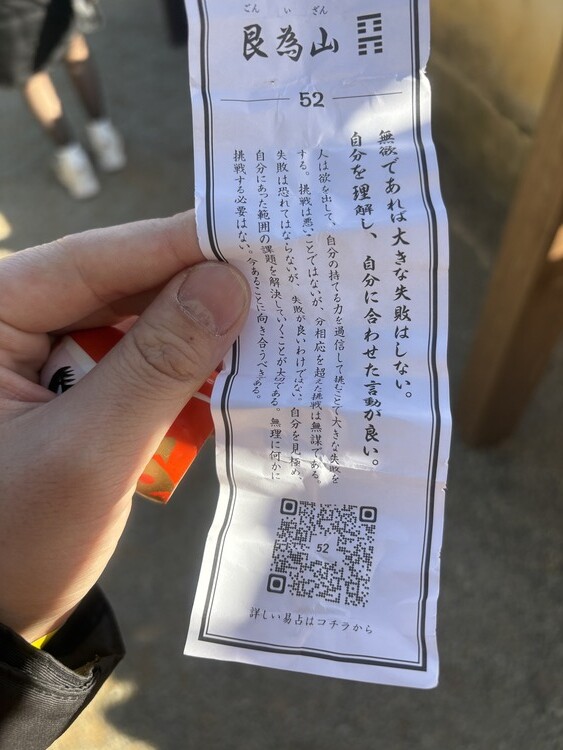 ごんいざん
艮為山
52
無欲であれば大きな失敗はしない。
自分を理解し、自分に合わせた言動が良い。
人は欲を出して、自分の持てる力を過信して挑むことで大きな失敗を
する。挑戦は悪いことではないが、分相応を超えた挑戦は無謀である。
失敗は恐れてはならないが、失敗が良いわけではない。自分を見極め、
自分にあった範囲の課題を解決していくことが大切である。無理に何かに
挑戦する必要はない。今あることに向き合うべきである。
52
詳しい易占はコチラから